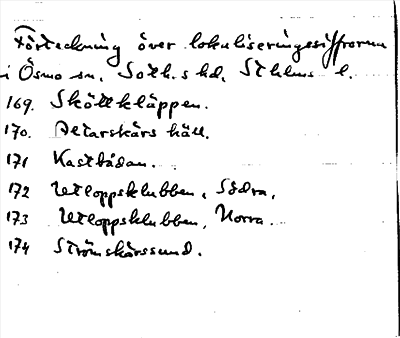 Förteckning över lokaliseringssiffrorna
i Ösmo sn, Soth.s hd, Sthlms l.
169. Sköllkläppen.
170. Petarskärs häll.
171 Kastbådan.
172 Utloppsklubben, Södra.
173 Utloppsklubben, Norra.
174 Strömskärssund.